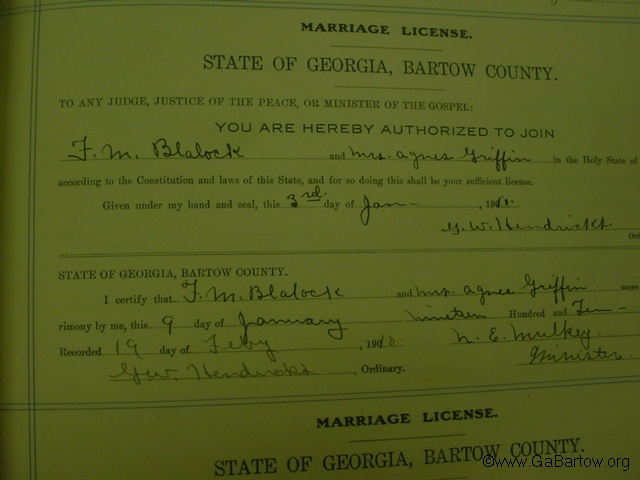 MARRIAGE LICENSE.
STATE OF GEORGIA, BARTOW COUNTY.
TO ANY JUDGE, JUSTICE OF THE PEACE, OR MINISTER OF THE GOSPEL:
YOU ARE HEREBY AUTHORIZED TO JOIN
F. M. Blalock and Mrs. Agnes Griffin in the Holy State of
according to the Constitution and laws of this State, and for so doing this shall be your sufficient license.
Given under my hand and seal, this 3rd. day of Jan- , 1910.
G. W. Hendricks
Ord
STATE OF GEORGIA, BARTOW COUNTY.
I certify that F. M. Blalock and Mrs. Agnes Griffin were
rimony by me, this 9 day of January nineteen Hundred and Ten-
Recorded 19 day of Feby , 1910. N. E. Mulkey.
G. W. Hendricks. , Ordinary. Minister
MARRIAGE LICENSE.
STATE OF GEORGIA, BARTOW COUNTY.
©www.GaBartow.org